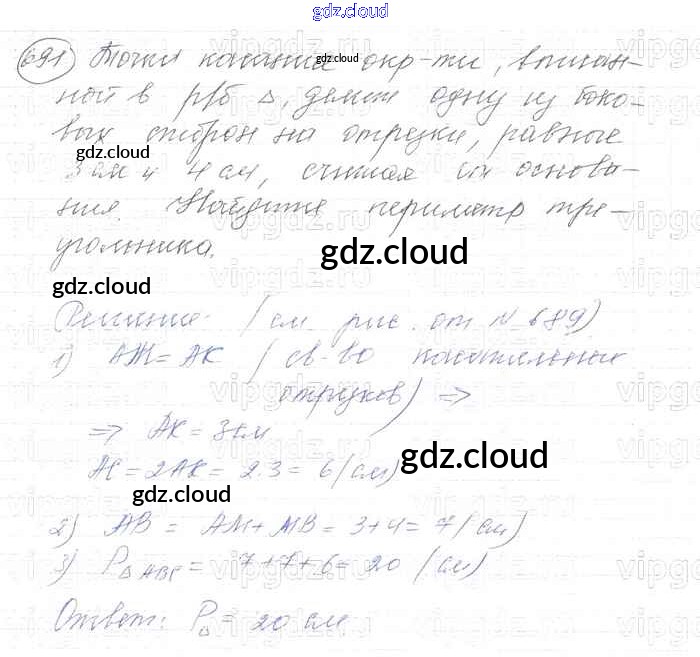 gdz.cloud
691 Точки касания окр-ти, вписан-
gdz.cloud
ной в р/б Δ, делит одну из боко-
вых сторон на отрезки, равные
gdz.cloud
3 см и 4 см, считая от основа-
ния. Найдите периметр тре-
угольника.
gdz.cloud
gdz.cloud
Решение: (см. рис. от № 689)
1) АМ = АК (св-во касательных
отрезков) ⇒
⇒ АК = 3 см
АС = 2АК = 2·3 = 6 (см)
gdz.cloud
gdz.cloud
2) АВ = АМ + МВ = 3+4 = 7 (см)
3) P Δ ABC = 7+7+6 = 20 (см)
Ответ: PΔ = 20 см